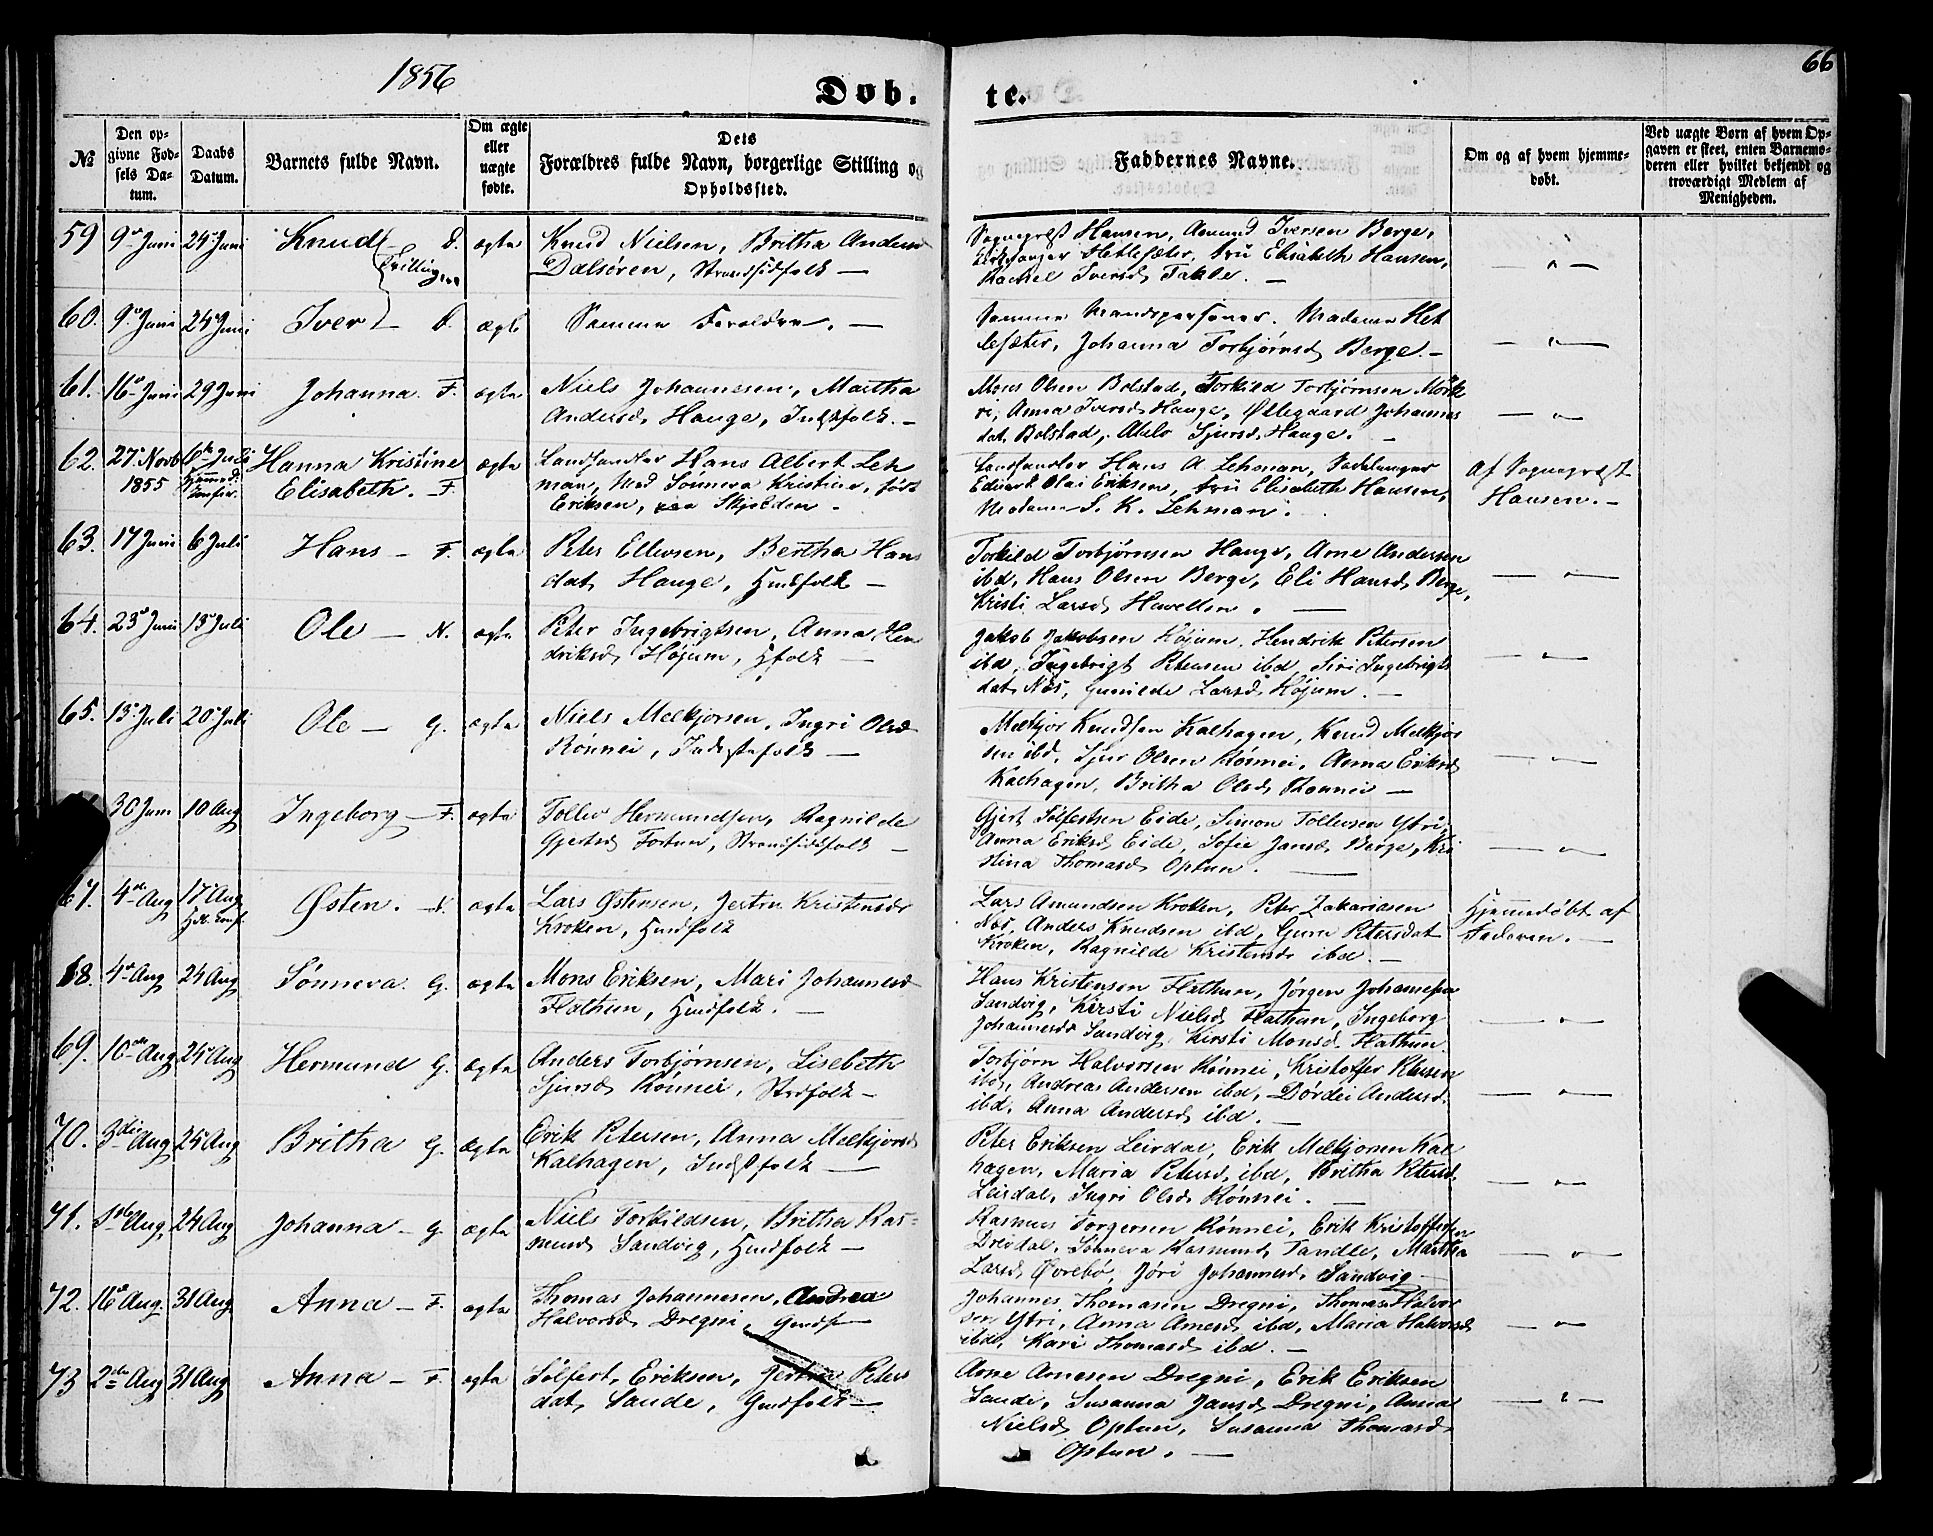 1856
66
Døb.
te.
No
Den opgivne Fødsels Datum.
Daabs Datum.
Barnets fulde Navn.
Om ægte eller uægte fødte.
Dets Forældres fulde Navn, borgerlige Stilling og Opholdssted.
Faddernes Navne.
Om og af hvem hjemmedøbt.
Ved uægte Børn af hvem Opgaven er skeet, enten Barnemoderen eller hvilket bekjendt og troværdigt Medlem af Menigheden.
59 9de Juni 24de Juni Knud D. ægte Knud Nielsen, Britha Andersd
Tvillinger Dalsøren, Strandsidfolk —
Sognepræst Hansen, Amund Iversen Berge,
Hetlesæter, Fru Elisabeth Hansen,
Rachel Iversd
60. 9de Juni 24de Juni Iver — D. ægte Samme Forældre. —
Samme Mandspersoner. Madame Het
lesæter, Johanna Torbjørnsd Berge. —
61. 16de Juni 29 Juni Johanna. F. ægte Niels Johannessen, Martha
Andersd, Hauge, Indstfolk. —
Mons Olsen Bolstad, Torkild Torbjørnsen Mørk
ri, Anna Iversd Hauge, Øllegaard Johannes
dat. Bolstad, Sjursd, Hauge. —
62. 27 Novb 6te Juli Hanna Kristine ægte Landhandler Hans Albert Leh
1855 Elisabeth. F. man, Mad Sønneva Kristine, født
Eriksen, Skjolden.
Landhandler Hans A. Lehman,
Eduard Olai Eriksen, Fru Elisabeth Hansen,
Madame S. K. Lehman.
Af Sognepræst
Hansen. —
63. 17 Juni 6 Juli Hans — F. ægte Peter Ellevsen, Bertha Hans
dat, Hauge, Hmdfolk —
Torkild Torbjørnsen Hauge, Arne Andersen
ibd, Hans Olsen Berge, Eli Hansd, Berge,
Kristi Larsd
64. 23de Juni 13de Juli Ole — N. ægte Peter Ingebrigtsen, Anna Hen
driksd, Højum, Hfolk —
Jakob Jakobsen Højum, Hendrik Petersen
ibd, Ingebrigt Petersen ibd, Siri Ingebrigts
dat. Næs, Gunilde Larsd Højum. —
65. 13de Juli 20de Juli Ole — G. ægte Niels Melkjorsen, Ingri Olsd
Rønnei, Indstefolk —
Melkjor Knudsen Kalhagen, Knud Melkjor
sen ibd, Sjur Olsen Rønnei, Anna Eriksd
Kalhagen, Britha Olsd, Rønnei —
30 Juni 10 Aug Ingeborg — F. ægte Tollev Hermundsen, Ragnilde
Gjertsd Fortun, Strandsidsfolk —
Gjert Tolfestsen Eide, Simon Tollevsen Ytri,
Anna Eriksd Eide, Sofie Jansd. Berge, Kri
stina Thomasd Optun. —
67. 4de Aug 17de Aug Østen. N. ægte Lars Østensen, Jertru Kristensd
Kroken, Hmdfolk
Lars Amundsen Kroken, Peter Zakariasen
Næs, Anders Knudsen ibd, Guru Petersdat
Kroken, Ragnilde Kristensd ibd. —
Hjemmedøbt af
Faderen. —
68. 4de Aug 24 Aug Sønneva. G. ægte Mons Eriksen, Mari Johannesd
Flathun, Hmdfolk. —
Hans Kristensen Flathun, Jørgen Johannesen
Sandvig, Kirsti Nielsd, Flathun, Ingeborg
Johannesd Sandvig, Kirsti Monsd. Flathun
69. 10de Aug 24de Aug Hermund G. ægte Anders Torbjørnsen, Lisebeth
Sjursd Rønnei, Strdfolk —
Torbjørn Halvorsen Rønnei, Kristoffer Petersen
ibd, Andreas Andersen ibd, Dørdei Andersd.
ibd, Anna Andersd, ibd. —
70. 3die Aug 25 Aug Britha G. ægte Erik Petersen, Anna Melkjorsd
Kalhagen, Indstfolk —
Peter Eriksen Leirdal, Erik Melkjorsen Kal
hagen, Maria Petersd, ibd, Britha Petersd.
Leirdal, Ingri Olsd, Rønnei. —
71. Aug, 24 Aug Johanna — G. ægte Niels Torkildsen, Britha Ras-
musd Sandvig, Hmdfolk —
Rasmus Torgersen Rønnei, Erik Kristoffersen
Drevdal, Sønneva Rasmusd, Tandle, Martha
Larsd, Øvrebø, Jøri Johannesd, Sandvig —
72. 16de Aug. 31 Aug Anna — F. ægte Thomas Johannesen, Andrea
Halvorsd Dregni, Gmdf
Johannes Thomasen Dregni, Thomas Halvor
sen Ytri, Anna Arnesd, ibd, Maria Halvorsd
ibd, Kari Thomasd ibd. —
73 2de Aug 31 Aug Anna — F. ægte Tolfest Eriksen, Jertru Peters
dat, Sande, Gmdfolk —
Arne Arnesen Dregni, Erik Eriksen
Sande, Susanna Jansd, Dregni, Anna
Nielsd, Optun, Susanna Thomasd
Optun. —